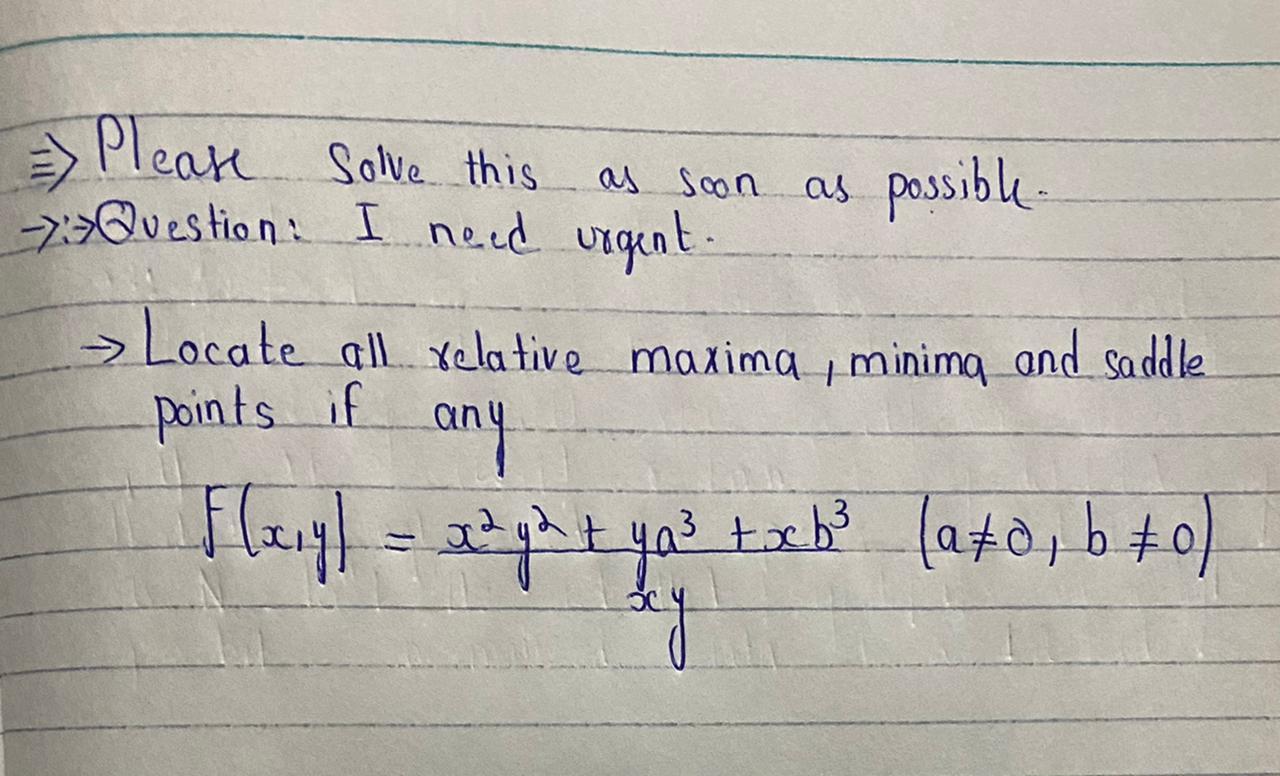 ⇛ Please Solve this as soon as possible.
→:→ Question: I need urgent.
→ Locate all relative maxima, minima and saddle
points if any
f(x,y) = x²y² + ya³ + xb³ (a≠0, b≠0)
xy